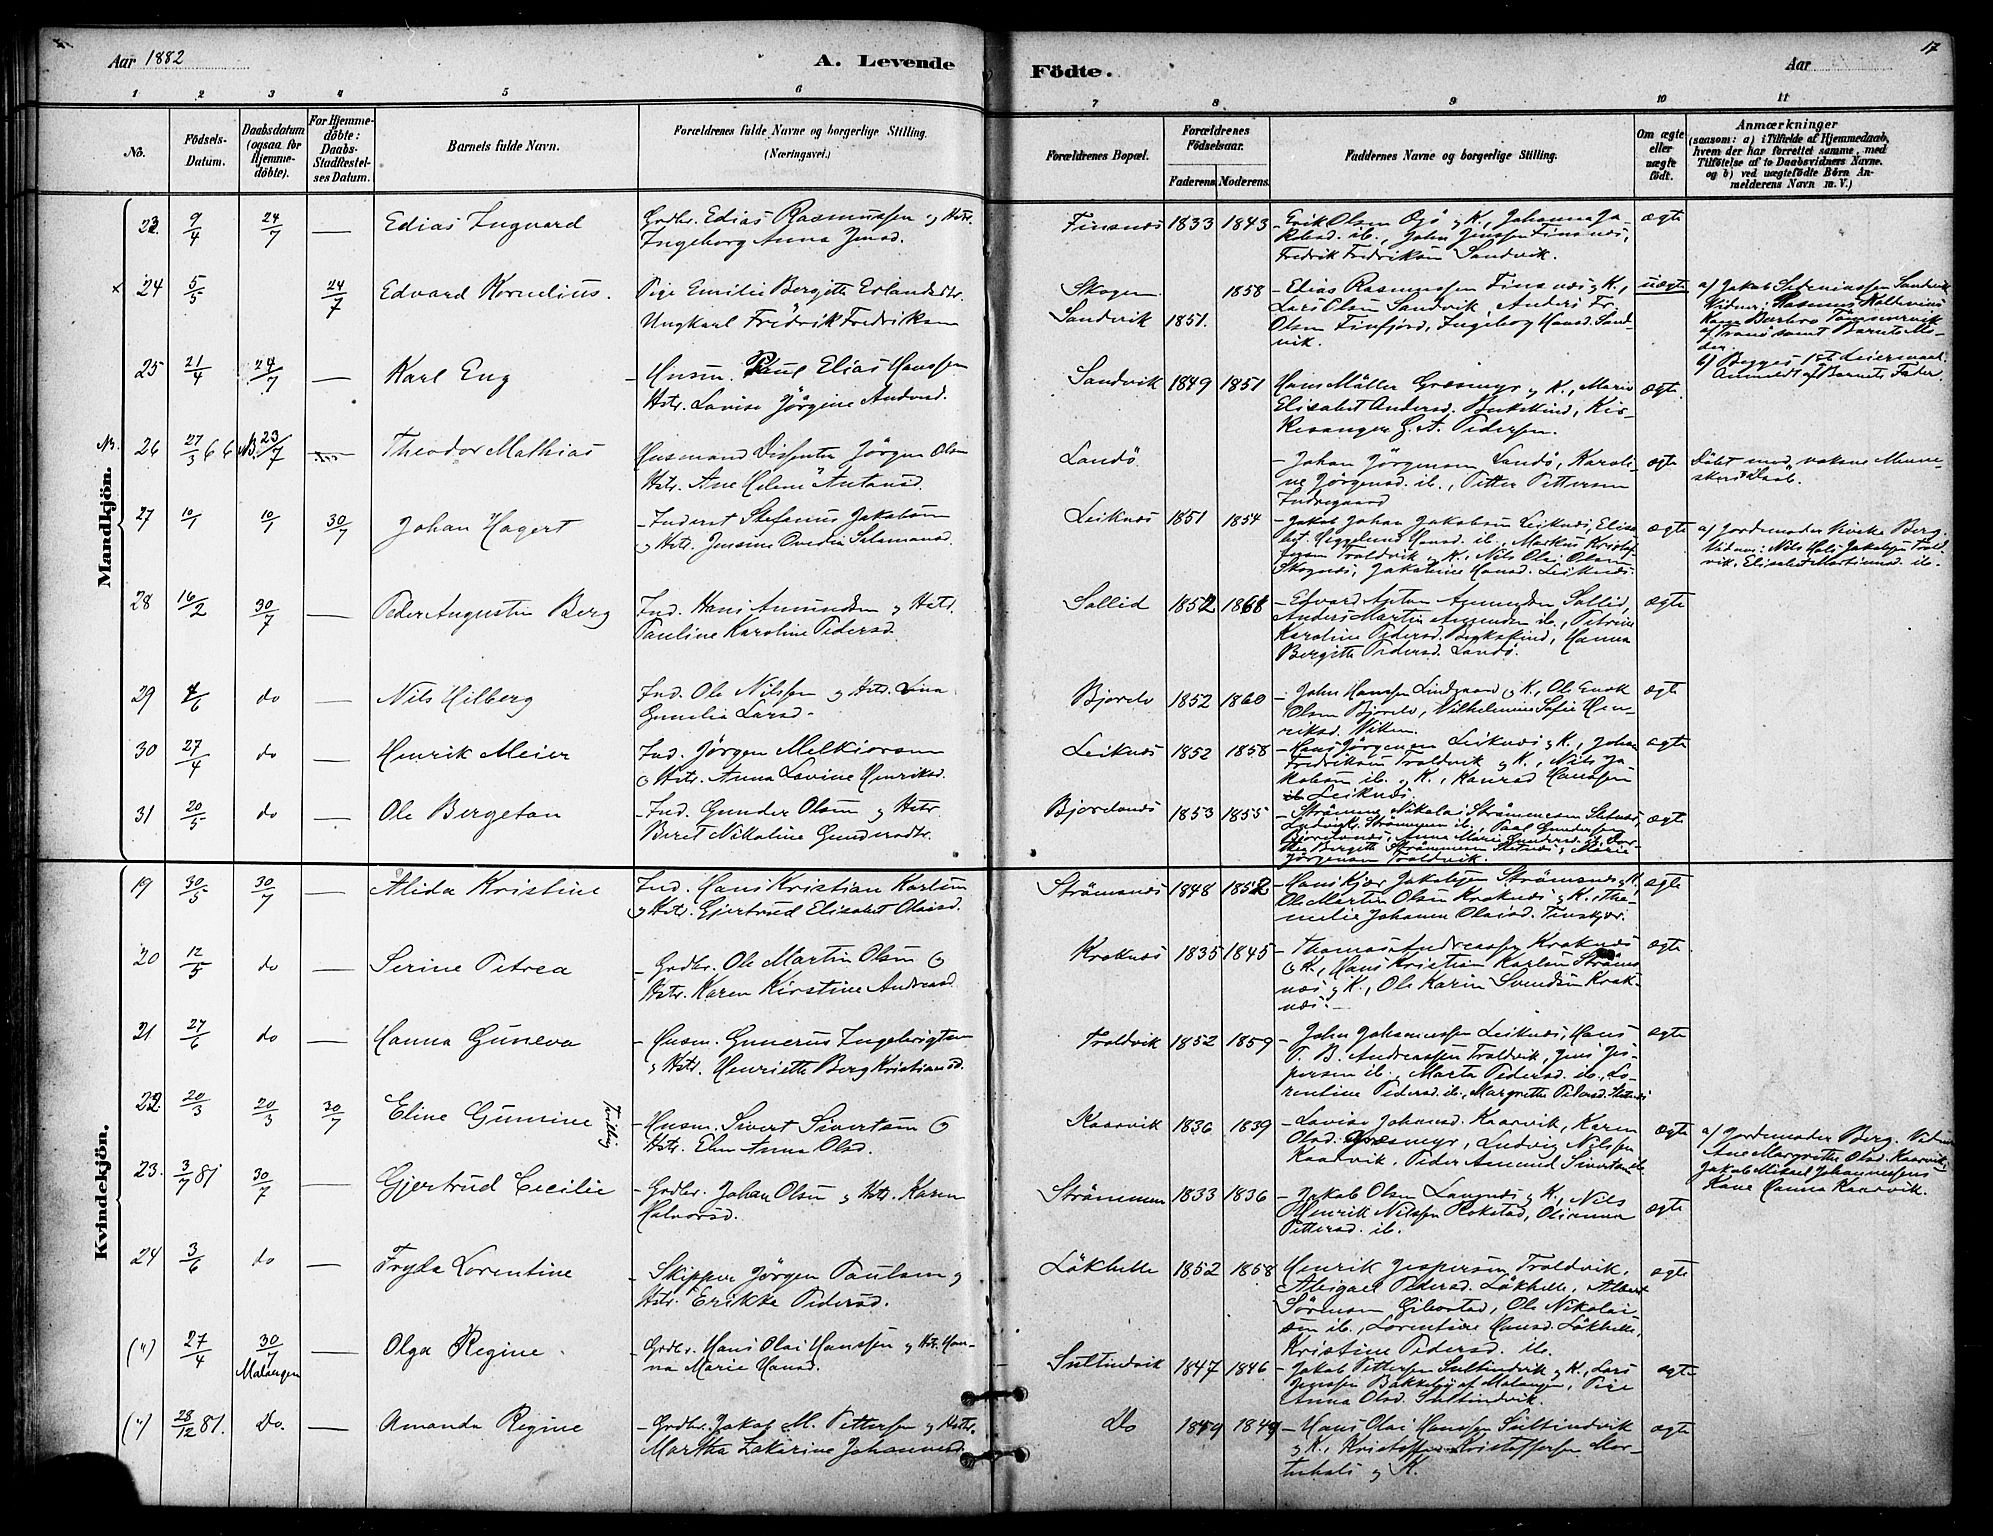 Aar 1882
A. Levende
Födte.
Aar
17
1 2 3 4 5 6 7 8 9 10 11
No.
Födsels-Datum.
Daabsdatum (ogsaa for Hjemme-döbte).
For Hjemme-döbte: Daabs-Stadfæstel-ses Datum.
Barnets fulde Navn.
Forældrenes fulde Navne og borgerlige Stilling.
(Næringsvei.)
Forældrenes Bopæl.
Forældrenes Födselsaar.
Faderens. Moderens.
Faddernes Navne og borgerlige Stilling.
Om ægte eller uægte födt.
Anmærkninger
(saasom: a) i Tilfælde af Hjemmedaab, hvem der har forrettet samme, med Tilföielse af to Daabsvidners Navne. og b) ved uægtefödte Börn Anmelderens Navn m. V.)
Mandkjön.
23 9/4 24/7 — Edias Ingvard
Grdbr. Edias Rasmussen og Hstr.
Ingeborg Anna Jensd.
Finsnæs 1833 1843
Erik Olsen og K., Johanna Ja-
kobsd. ib., John Jenssen Finsnæs,
Fredrik Fredriksen Sandvik.
ægte
x 24 5/5 24/7 Edvard Kornelius.
Pige Emilie Bergitte Erlandsdtr.
Ungkarl Fredrik Fredriksen
Skogen 1858
Sandvik 1851.
Edias Rasmussen Finsnæs og K.,
Lars Olsen Sandvik, Anders Fr.
Olsen Finfjord, Ingeborg Hansd. Sand-
vik.
uægte
a/ Jakob Sandvik
Vidner: Rasmus
Kone Barbro
af Tranö samt Barnets Mo-
der.
b/ Begges 1ste Leiermaal.
Anmeldt af Barnets Fader.
25 21/4 24/7 — Karl Eug
Husm. Paul Elias Hanssen
Hstr. Lovise Jörgine Andersd.
Sandvik 1849 1851
Hans Möller Græsmyr og K., Marie
Elisabet Andersd. Bukskind, Kir-
kesanger G. A. Pedersen.
ægte.
NB. 26 27/3 66 NB. 23/7 — Theodor Mathias
Husmand Jörgen Olsen
Hstr. Ane Helene Antonsd.
Landö.
Johan Jörgensen Landö, Karoli-
ne Jörgensd. ib., Petter Pettersen
Indregaard
ægte
Döbt med voksne Menne-
skers Daab.
27 10/1 10/1 30/7 Johan Hagert
Inderst Stefanus Jakobsen
og Hstr. Jensine Ovedia Salamonsd.
Leiknæs 1851 1854
Jakob Johan Jakobsen Leiknæs, Elisa-
bet Hansd. ib., Markus Kristof-
fersen Troldvik og K., Nils Olai Olsen
Skognæs, Jakobine Hansd. Leiknæs.
ægte
a/ Jordemoder Berg.
Vidner: Nils Hals Jakobsen Trold-
vik, Elisabet Martinusd. ib.
28 16/2 30/7 — Peder Augustin Berg
Ind. Hans Amundsen og Hstr.
Pauline Karoline Pedersd.
Sollid 1852 1861
Edvard Anton Amundsen Sollid,
Anders Martin Amundsen ib., Petrine
Karoline Pedersd. Bukskind, Hanna
Bergitte Pedersd. Landö.
ægte
29 4/6 do — Nils Hilberg
Ind. Ole Nilssen og Hstr. Lina
Gunelia Larsd.
Bjorelv 1852 1860
John Hanssen Lindgaard og K., Ole Enok
Olsen Bjorelv, Vilhelmine Sofie Hen-
riksd. Vikten.
ægte
30 27/4 do — Henrik Meier
Ind. Jörgen Melkiorsen
og Hstr. Anna Lovine Henriksd.
Leiknæs 1852 1858
Hans Jörgensen Leiknæs og K., Johan
Fredriksen Troldvik og K., Nils Ja-
kobsen ib. og K., Konrad Hanssen
Leiknæs.
ægte
31 20/5 do — Ole Bergeton
Ind. Gunder Olsen og Hstr.
Beret Nikoline Gundersdtr.
Bjorelvnæs 1853 1855
Nikolai Strömmesen
Ludvig Strömmen ib., Paal Gundersen
Bjorelvnæs, Anna Marie Gundersd., Dor-
thea Bergitte Strömmesen og Marie
Jörgensen Troldvik.
ægte
Kvindekjön.
19 30/5 30/7 — Alida Kristine
Ind. Hans Kristian Karlsen
og Hstr. Gjertrud Elisabet Olaisd.
Strömsnæs 1848 1852
Hans Kjær Jakobsen Strömsnæs og K.,
Ole Martin Olsen Kraknæs og K.,
Johanna Olaisd. Finskjær.
ægte
20 12/5 do — Serine Petrea
Grdbr. Ole Martin Olsen og
Hstr. Karen Kirstine Andreasd.
Kraknæs 1835 1845
Thomas Andreassen Kraknæs
og K., Hans Kristian Karlsen Ströms-
næs og K., Ole Karin Svendsen Krak-
næs.
ægte.
21 27/6 do — Hanna Guneva
Husm. Gunerus Ingebrigtsen
og Hstr. Henriette Berg Kristiansd.
Troldvik 1852 1859
John Johannessen Leiknæs, Hans
P. B. Andreassen Troldvik, Jens Jes-
persen ib., Marta Pedersd. ib., Lo-
rentine Pedersd. ib., Margrethe Pedersd.
ægte
22 20/3 20/3 30/7 Eline Gunine Tvilling
Husm. Sivert Sivertsen og
Hstr. Elen Anna Olsd.
Kaarvik 1836 1839
Lovise Johansd. Kaarvik, Karen
Olsd. Græsmyr, Ludvig Nilssen
Kaarvik, Peder Amund Sivertsen ib.
ægte
a/ Jordemoder Berg. Vidner
Ane Margrethe Olsd. Kaarvik
Jakob Mikael Johannessens
Kone Hanna Kaarvik.
23. 3/7 81 30/7 — Gjertrud Cecilie
Grdbr. Johan Olsen og Hstr. Karen
Halvorsd.
Strömmen 1833 1836
Jakob Olsen Langnæs og K., Nils
Henrik Nilssen Rokstad, Olianna
Pettersd. ib.
ægte
24 3/6 do — Fryda Lorentine
Skipper Jörgen Paulsen og
Hstr. Erikke Pedersd.
Lökhelle 1852 1858
Henrik Jespersen Troldvik,
Abigael Pedersd. Lökhelle, Albert
Sörensen Gibostad, Ole Nikolai-
sen ib., Lorentine Hansd. Lökhelle,
Kristine Pedersd. ib.
ægte
(") 27/4 30/7 Malangen — Olga Regine.
Grdbr. Hans Olai Hanssen og Hstr. Han-
na Marie Hansd.
Sultindvik 1847 1846
Jakob Pettersen Sultindvik og K., Lars
Jenssen Bakkeby af Malangen, Pige
Anna Olsd. Sultindvik.
ægte
(") 28/12 81. Do. — Amanda Regine
Grdbr. Jakob M. Pettersen og Hstr.
Martha Zakirine Johannesd.
Do 1849 1849
Hans Olai Hanssen Sultindvik
og K., Kristoffer Kristoffersen Mor-
tenhals og K.
ægte